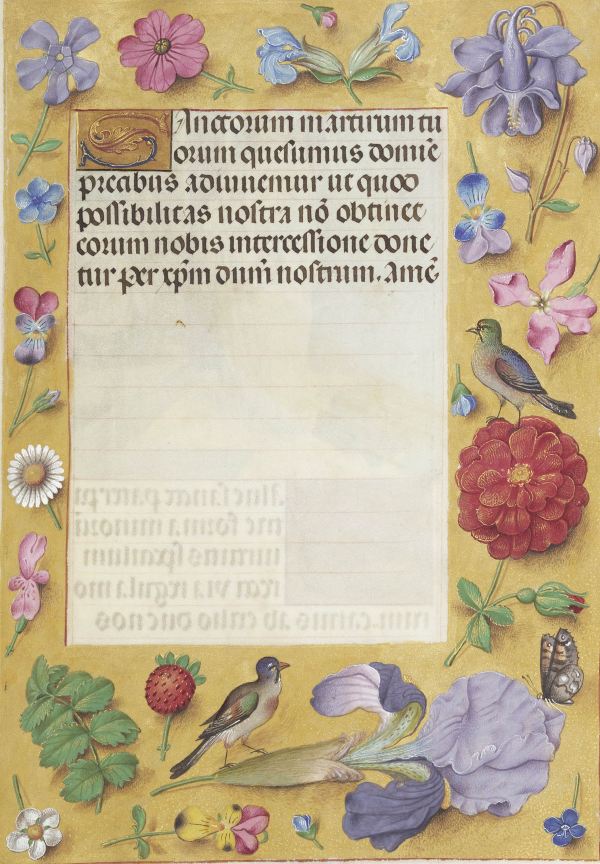 Sanctorum martirum tu
orum quesumus domiē
precibus adiuuemur ut quod
possibilitas nostra nō obtinet
eorum nobis intercessione done
tur per xp̄m dnm̄ nostrum. Amē